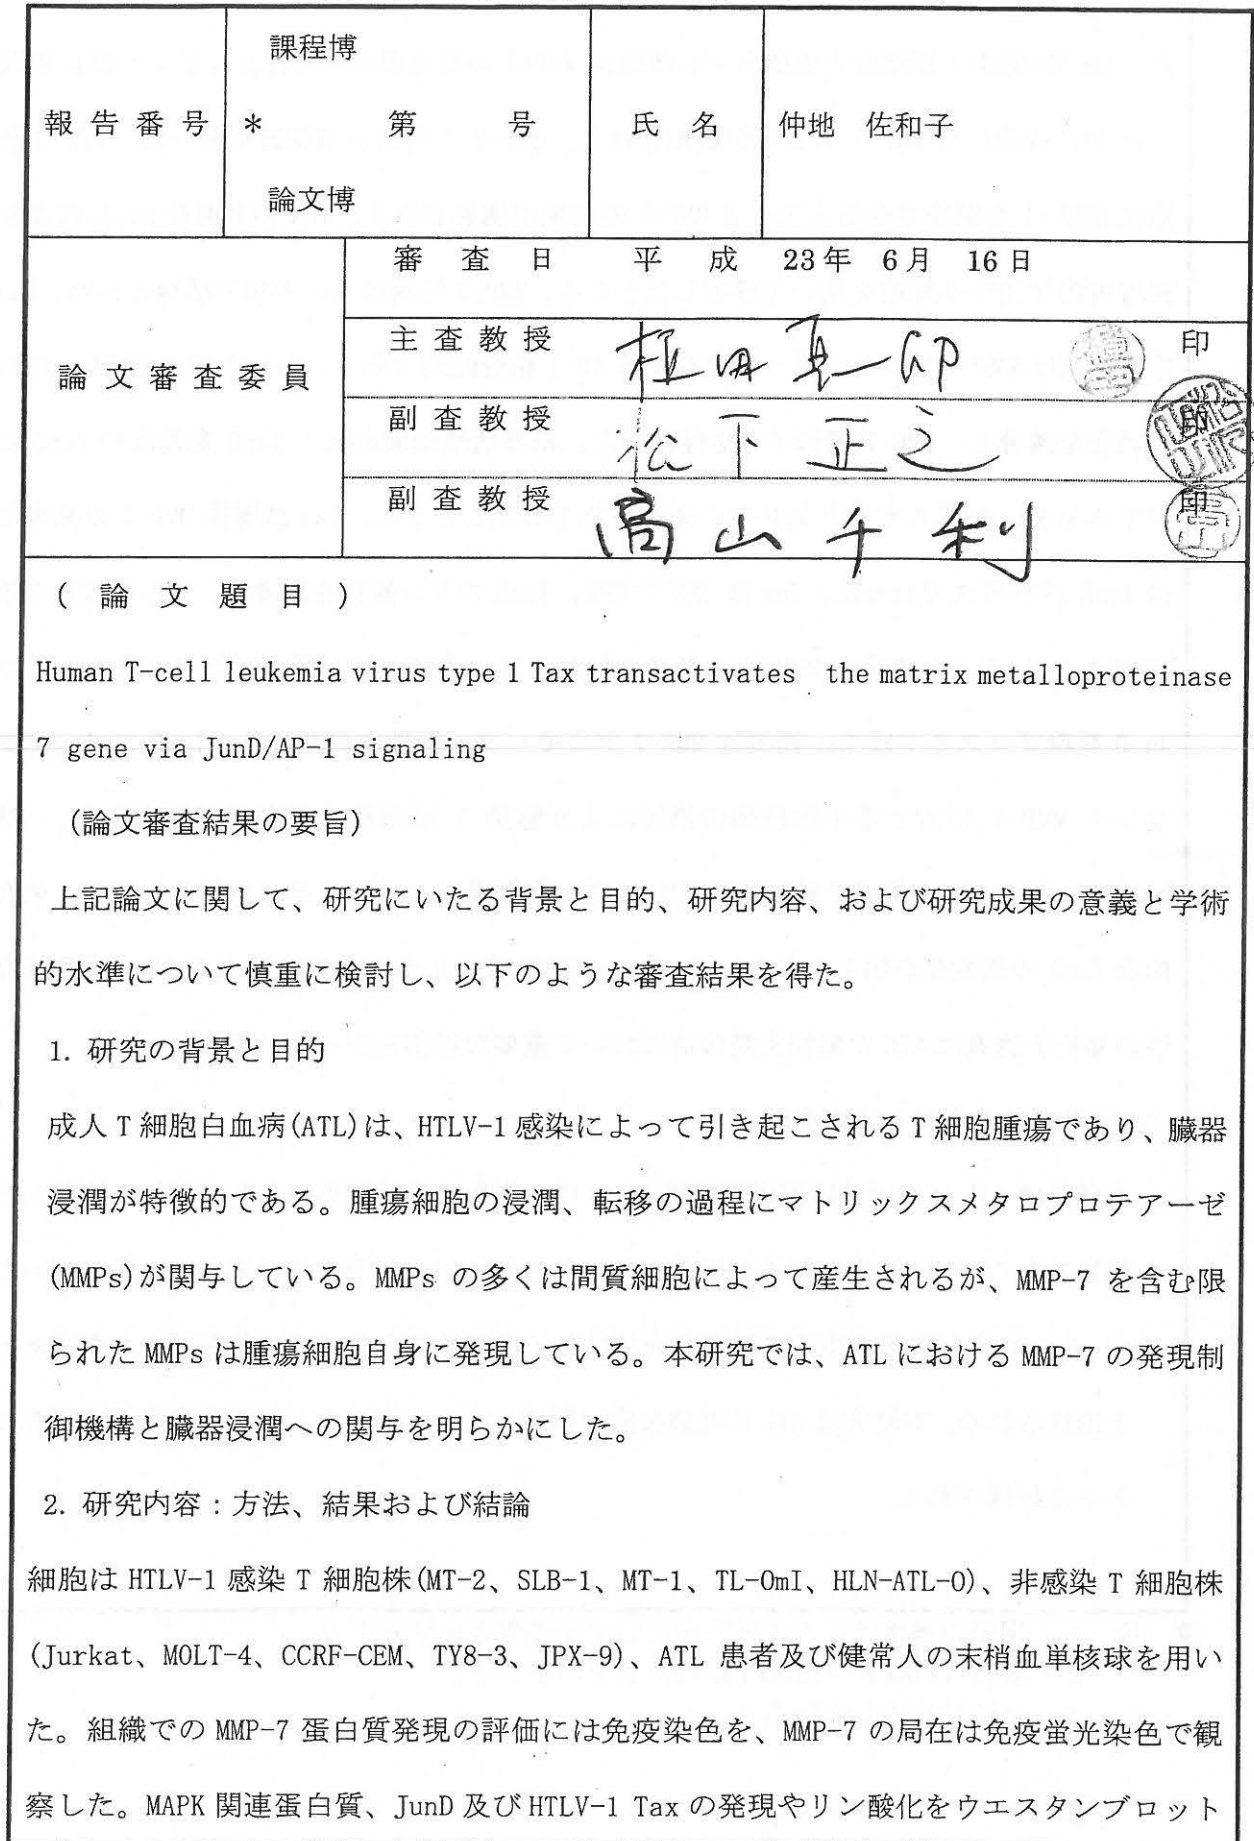 課程博
報告番号 * 第 号 氏名 仲地 佐和子
論文博
審査日 平成 23年 6月 16日
論文審査委員
主査教授 植田真一郎 印
副査教授 松下正之 印
副査教授 高山千利 印
(論文題目)
Human T-cell leukemia virus type 1 Tax transactivates the matrix metalloproteinase
7 gene via JunD/AP-1 signaling
(論文審査結果の要旨)
上記論文に関して、研究にいたる背景と目的、研究内容、および研究成果の意義と学術
的水準について慎重に検討し、以下のような審査結果を得た。
1. 研究の背景と目的
成人T細胞白血病(ATL)は、HTLV-1感染によって引き起こされるT細胞腫瘍であり、臓器
浸潤が特徴的である。腫瘍細胞の浸潤、転移の過程にマトリックスメタロプロテアーゼ
(MMPs)が関与している。MMPs の多くは間質細胞によって産生されるが、MMP-7 を含む限
られたMMPsは腫瘍細胞自身に発現している。本研究では、ATLにおけるMMP-7の発現制
御機構と臓器浸潤への関与を明らかにした。
2. 研究内容：方法、結果および結論
細胞はHTLV-1感染T細胞株(MT-2、SLB-1、MT-1、TL-OmI、HLN-ATL-O)、非感染T細胞株
(Jurkat、MOLT-4、CCRF-CEM、TY8-3、JPX-9)、ATL患者及び健常人の末梢血単核球を用い
た。組織でのMMP-7蛋白質発現の評価には免疫染色を、MMP-7の局在は免疫蛍光染色で観
察した。MAPK関連蛋白質、JunD及びHTLV-1 Taxの発現やリン酸化をウエスタンブロット